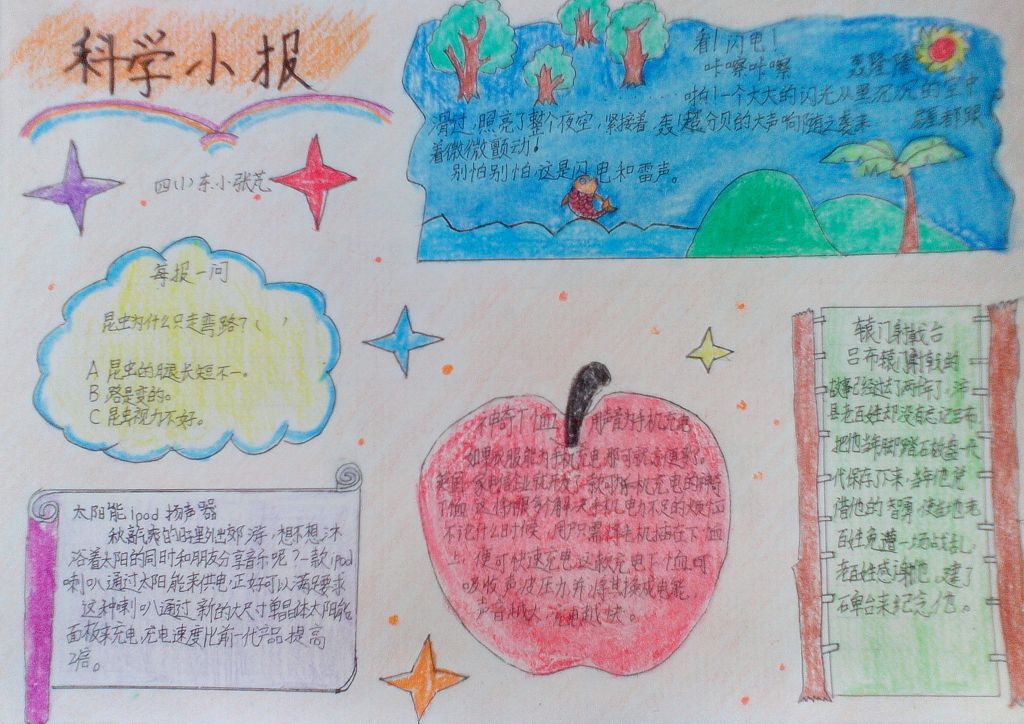 科学小报
四(1)东小张芃
看!闪电!
咔嚓咔嚓 轰隆隆
啪!一个大大的闪光从黑沉沉的空中
滑过,照亮了整个夜空,紧接着,轰!超分贝的大声响随之袭来
都跟
着微微颤动!
别怕别怕,这是闪电和雷声。
每报一问
昆虫为什么只走弯路?( )
A 昆虫的腿长短不一。
B 路是弯的。
C 昆虫视力不好。
太阳能ipod扬声器
秋高气爽的日子里外出郊游,想不想沐
浴着太阳的同时和朋友分享音乐呢?一款ipod
喇叭通过太阳能来供电,正好可以满足要求
这种喇叭通过新的大尺寸单晶体太阳能
面板来充电,充电速度比前一代产品提高
2倍。
神奇T恤 用声音为手机充电
如果衣服能为手机充电那可就方便多了。
英国一家通信企业就开发了一款可为手机充电的神奇
T恤
不论什么时候,用户只需将手机插在T恤
上,便可快速充电,这款充电T恤可
吸收声波压力,并将其换成电能
声音越大,充电越快。
辕门射戟台
吕布辕门射戟的
故事已经过了两千年了,沛
县老百姓却没有忘记吕布
把他当年脚踏石鼓垫一代
代保存了下来,当年他凭
借他的智勇使当地老
百姓免遭一场战乱
老百姓感谢他。建了
石碑台来纪念他。